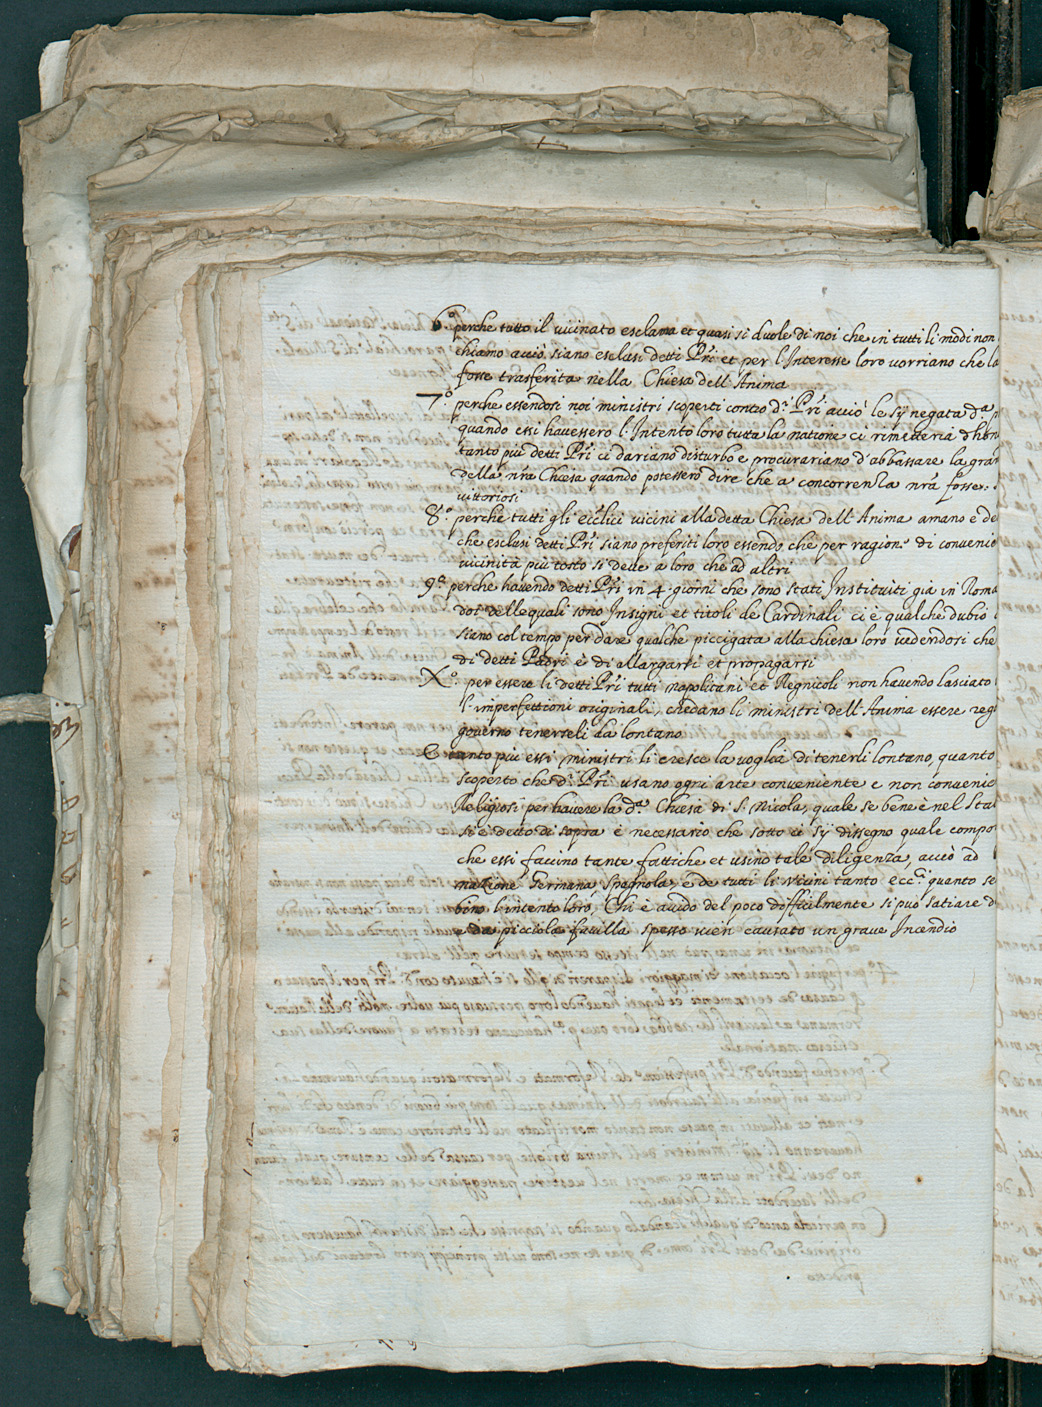 6.º perche tutto il vicinato esclama et quasi si duole di noi che in tutti li modi non
chiamo acciò siano esclusi detti Pri et per l'Interesse loro vorriano che la
fosse trasferita nella Chiesa dell'Anima
7.º perche essendosi noi ministri scoperti contro d.i Pri acciò le sÿ negata d.a
quando essi havessero l'Intento loro tutta la natione ci rimetteria d'hon
tanto più detti Pri ci dariano disturbo e procurariano d'abbassare la gran
della nra Chiesa quando potessero dire che a concorrenza nrã fosse
vittoriosi
8.º perche tutti gli eicl̃ici vicini alla detta Chiesa dell'Anima amano e de
che esclusi detti Pri siano preferiti loro essendo che per ragion.e di convenie
vicinità più tosto si deve a loro che ad altri
9.ª perche havendo detti Pri in 4 giorni che sono stati Instituiti già in Roma
doi delle quali sono Insigni et titoli de Cardinali ci è qualche dubio
siano col tempo per dare qualche piccigata alla chiesa loro vedendosi che
di detti Padri è di allargarsi et propagarsi
X.º per essere li detti Pri tutti napolitani et Regnicoli non havendo lasciato
l'imperfettioni originali, credano li ministri dell'Anima essere reg
governo tenerseli da lontano
E tanto più essi ministri li cresce la voglia di tenerli lontano, quanto
scoperto che d.i Pri usano ogni arte conveniente e non convenie
Religiosi per havere la d.a Chiesa di S. Nicola, quale se bene è nel sta
si è detto di sopra è necessario che sotto ci sÿ dissegno quale compo
che essi faccino tante fattiche et usino tale diligenza, acciò ad
natione Germana, Spagnola, e de tutti li vicini tanto ecc.ci quanto se
bino l'intento loro, Chi è avido del poco difficilmente si può satiare d
e da picciola favilla spesso vien causato un grave Incendio